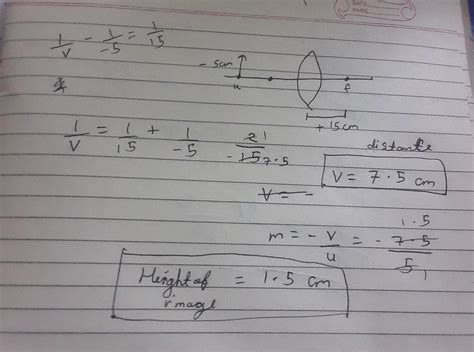 DATE
PAGE
1/v - 1/-5 = 1/15
- 5cm
u
f
+ 15cm
1/v = 1/15 + 1/-5
21
- 15 7.5
distante
V = -
V = 7.5 cm
m = - v/u = - 7.5/5
1.5
1
Height of image = 1.5 cm